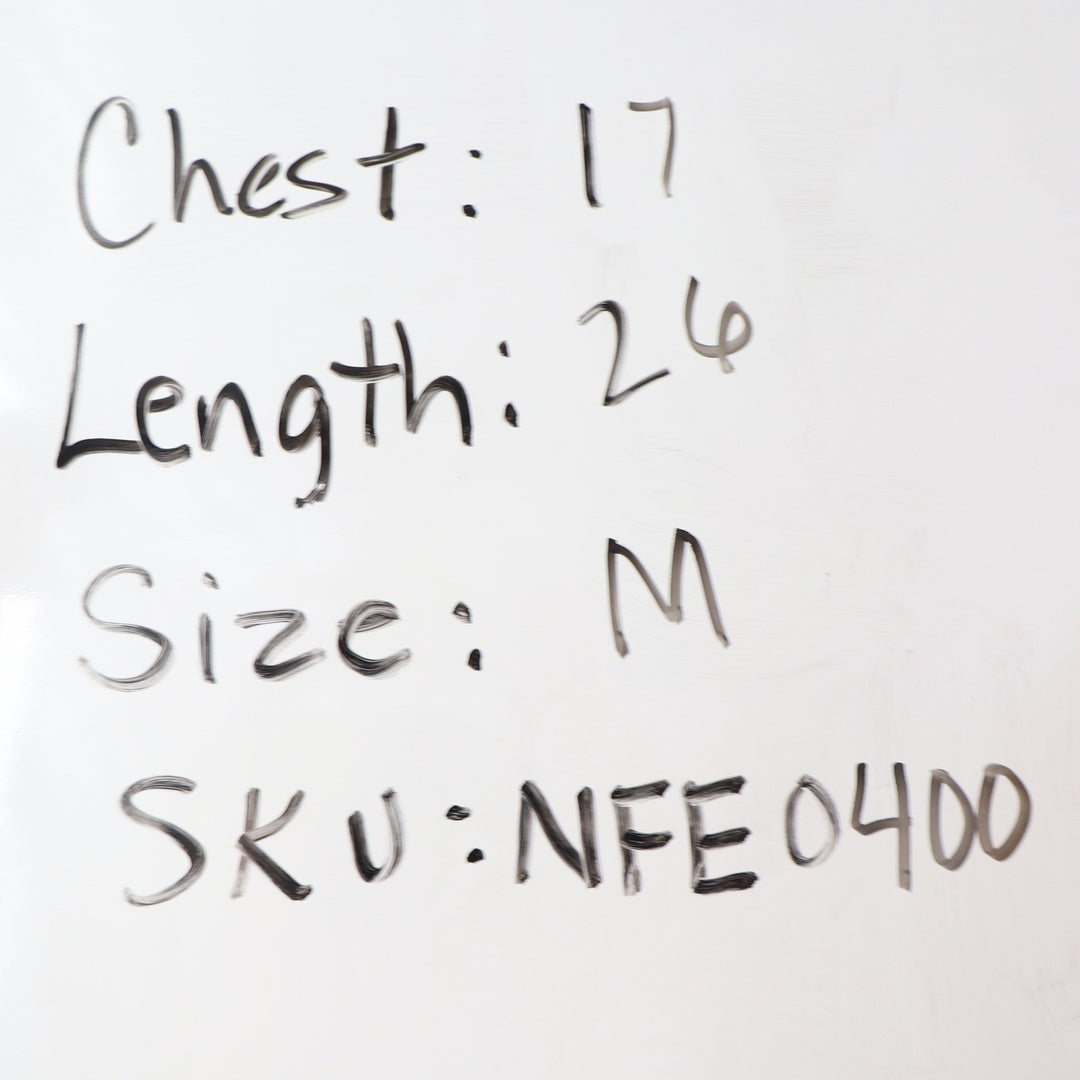 Chest: 17
Length: 26
Size: M
SKU: NFE0400